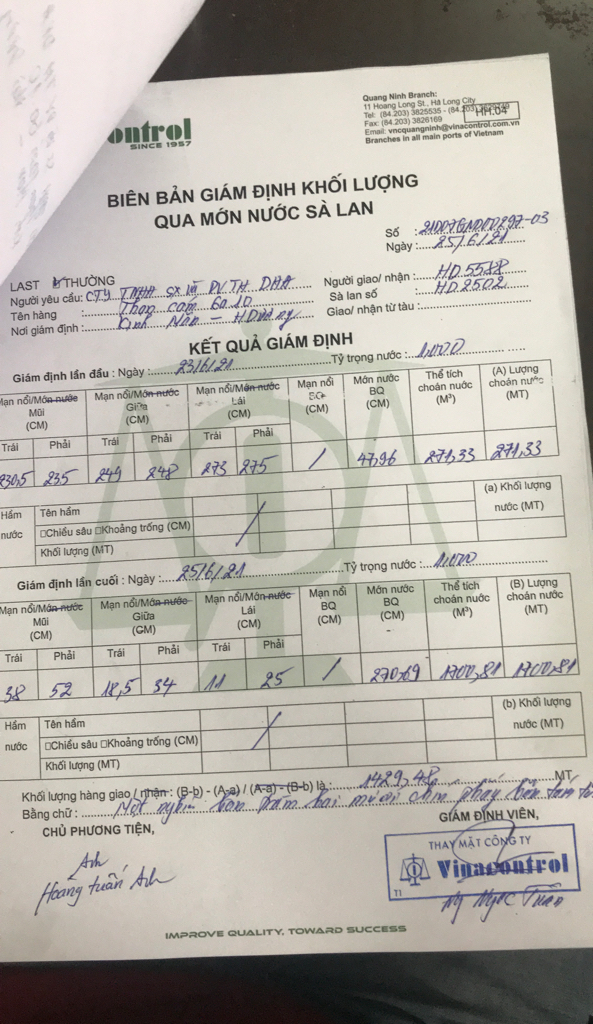 Quang Ninh Branch:
11 Hoang Long St., Hã Long City
Tel: (84.203) 3825535 - (84.203)
HH.04
Fax: (84.203) 3826169
Email: vncquangninh@vinacontrol.com.vn
Branches in all main ports of Vietnam
ontrol
SINCE 1957
BIÊN BẢN GIÁM ĐỊNH KHỐI LƯỢNG
QUA MỚN NƯỚC SÀ LAN
Số : 21D07GND00297-03
Ngày : 25/6/21
LAST THƯỜNG
Người yêu cầu: CTY TNHH SX và DV.TH DHA
Người giao/ nhận : HD.5588
Tên hàng : Than cám 6a.10
Sà lan số : HD.2502
Nơi giám định : - HDương
Giao/ nhận từ tàu :
KẾT QUẢ GIÁM ĐỊNH
Giám định lần đầu : Ngày : 23/6/21 Tỷ trọng nước : 1,000
Mạn nổi/Món nước Mũi (CM)
Mạn nổi/Món nước Giữa (CM)
Mạn nổi/Món nước Lái (CM)
Mạn nổi BQ (CM)
Món nước BQ (CM)
Thể tích choán nước (M³)
(A) Lượng choán nước (MT)
Trái Phải Trái Phải Trái Phải
230,5 235 249 248 273 275 / 47,96 271,33 271,33
Hầm nước
Tên hầm
(a) Khối lượng nước (MT)
□Chiều sâu □Khoảng trống (CM)
Khối lượng (MT)
/
Giám định lần cuối : Ngày : 25/6/21 Tỷ trọng nước : 1,000
Mạn nổi/Món nước Mũi (CM)
Mạn nổi/Món nước Giữa (CM)
Mạn nổi/Món nước Lái (CM)
Mạn nổi BQ (CM)
Món nước BQ (CM)
Thể tích choán nước (M³)
(B) Lượng choán nước (MT)
Trái Phải Trái Phải Trái Phải
38 52 18,5 34 11 25 / 270,69 1700,81 1700,81
Hầm nước
Tên hầm
(b) Khối lượng nước (MT)
□Chiều sâu □Khoảng trống (CM)
Khối lượng (MT)
/
Khối lượng hàng giao / nhận : (B-b) - (A-a) / (A-a) - (B-b) là : 1429,48 MT
Bằng chữ : Một nghìn bốn trăm hai mươi chín phảy bốn tám
CHỦ PHƯƠNG TIỆN,
GIÁM ĐỊNH VIÊN,
THAY MẶT CÔNG TY
Vinacontrol
T1
Anh
Hoàng Tuấn Anh
Ngọc
IMPROVE QUALITY, TOWARD SUCCESS